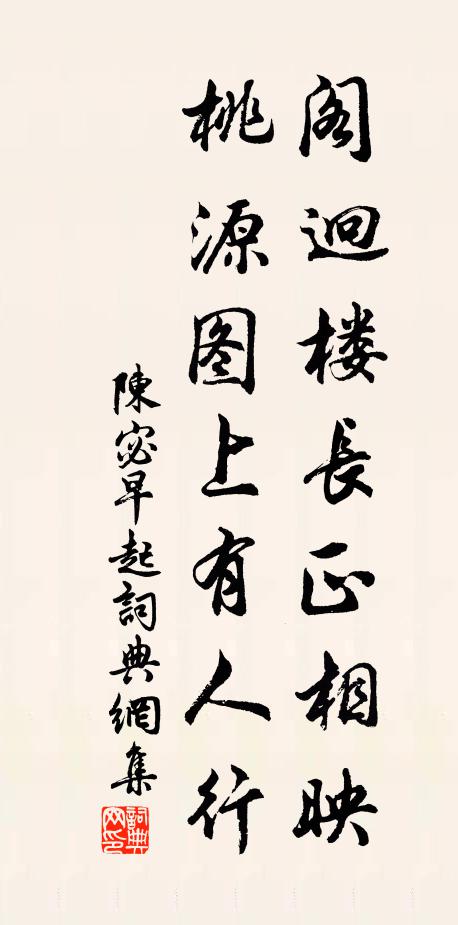 阁迥楼長正相映
桃源图上有人行
陳宓早起詞典網集
詞典
网印